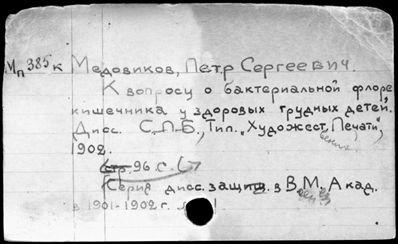 Мп 385к Медовиков, Петр Сергеевич.
К вопросу о бактериальной флоре
кишечника у здоровых грудных детей.
Дисс. С.П.Б., Тип. "Художест. Печати",
1902.
Стр. 96 с.
(Серия дисс. защищ. в В.М. Акад.
в 1901-1902 г.